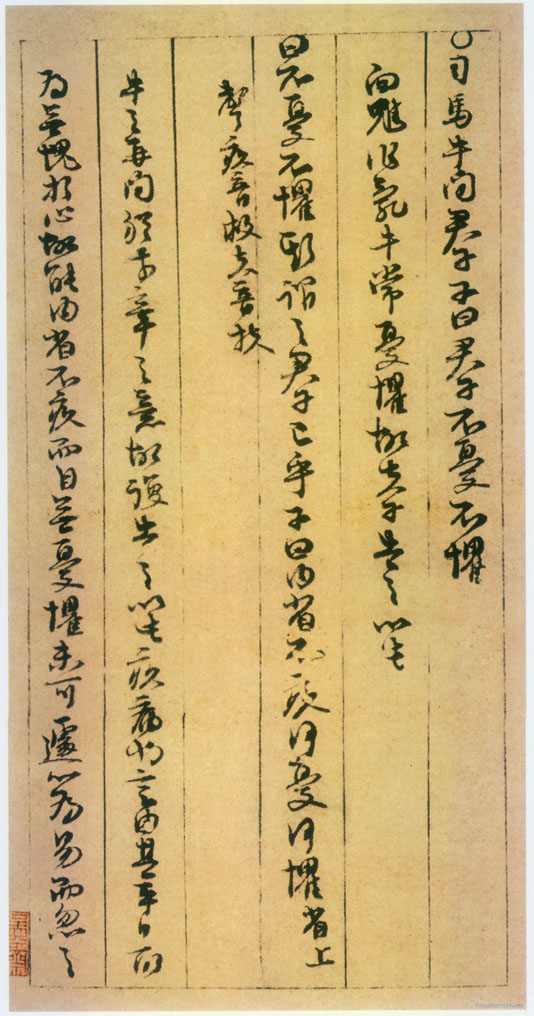 〇司馬牛問君子子曰君子不憂不懼
向魋作亂牛常憂懼故夫子告之以此
曰不憂不懼斯謂之君子已乎子曰內省不疚何憂何懼省上
聲疚音救夫音扶
牛之再問猶前章之意故復告之以此疚病也言由其平日所
為無愧於心故能內省不疚而自無憂懼未可遽以為易而忽之